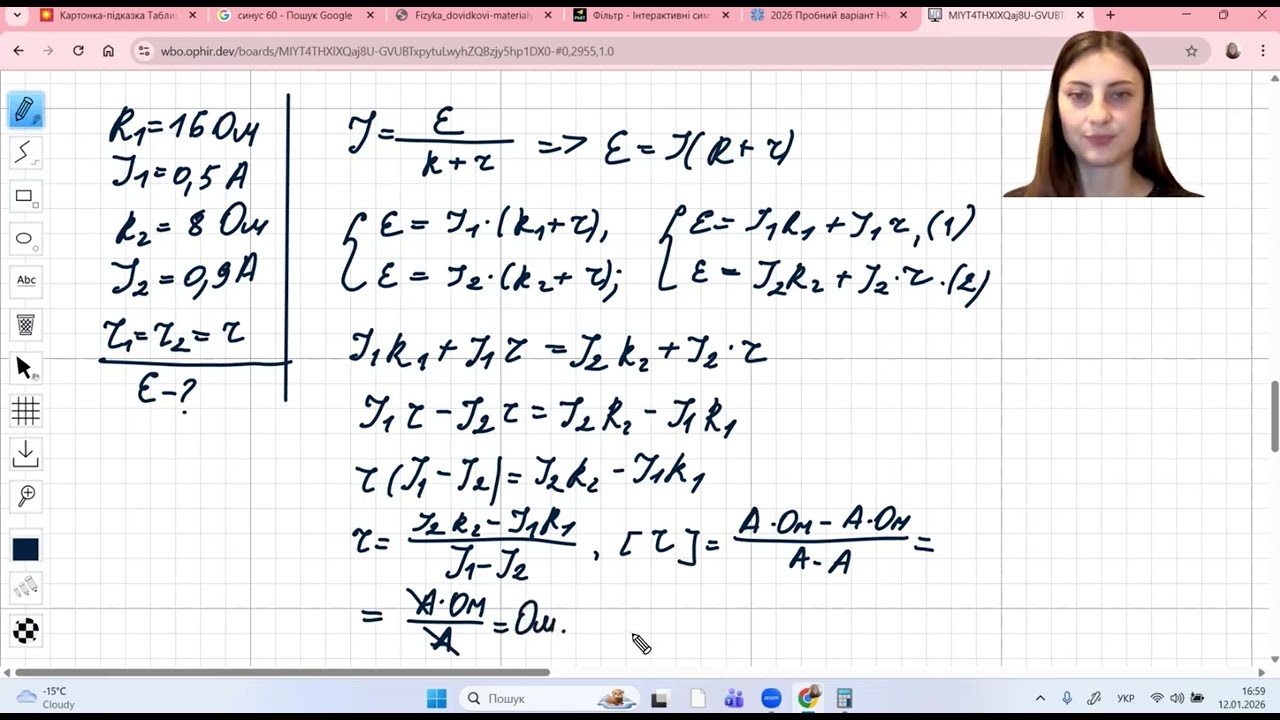 Картонка-підказка Табли
синус 60 - Пошук Google
Fizyka_dovidkovi-materialy
Фільтр - Інтерактивні сим
2026 Пробний варіант НМ
MIYT4THXIXQaj8U-GVUBT
wbo.ophir.dev/boards/MIYT4THXIXQaj8U-GVUBTxpytuLwyhZQBzjy5hp1DX0-#0,2955,1.0
Abc
R₁=16 Ом
I₁=0,5 А
R₂= 8 Ом
I₂=0,9 А
r₁=r₂= r
ε-?
I= ε/(R+r) => ε = I(R+r)
ε = I₁·(R₁+r), ε= I₁R₁+I₁r, (1)
ε = I₂·(R₂+r); ε = I₂R₂+I₂·r. (2)
I₁R₁+I₁r = I₂R₂+I₂·r
I₁r - I₂r = I₂R₂ - I₁R₁
r(I₁-I₂) = I₂R₂ - I₁R₁
r= (I₂R₂-I₁R₁)/(I₁-I₂), [r]= (А·Ом-А·Ом)/(А-А) =
= А·Ом/А = Ом.
-15°C
Cloudy
Пошук
zoom
УКР
16:59
12.01.2026